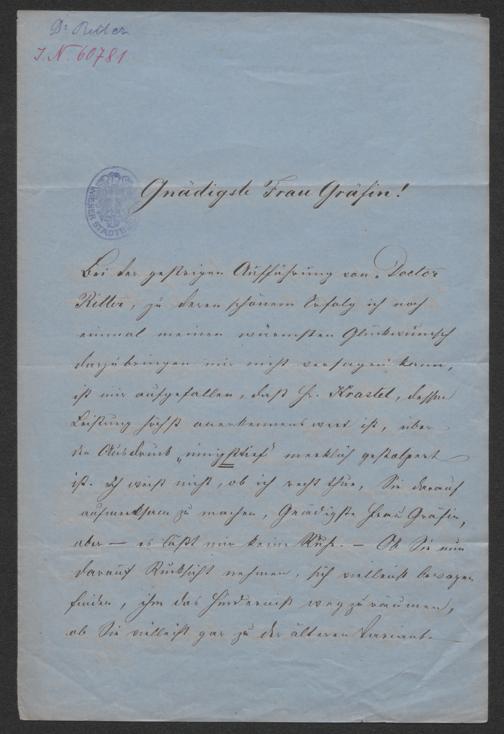 Dr. Ritter
J. N. 60781
WIENER STADTBI
Gnädigste Frau Gräfin!
Bei der gestrigen Aufführung von Doctor
Ritter, zu deren schönem Erfolg ich noch
einmal meinen wärmsten Glückwunsch
darzubringen mir nicht versagen kann,
ist mir aufgefallen, daß Hr. Krastel, dessen
Leistung höchst anerkennenswert ist, über
den Ausdruck „innigsttief“ merklich gestolpert
ist. Ich weiß nicht, ob ich recht thue, Sie darauf
aufmerksam zu machen, Gnädigste Frau Gräfin,
aber — es läßt mir keine Ruhe. — Ob Sie nun
darauf Rücksicht nehmen, sich vielleicht bewogen
finden, ihm das Hinderniß wegzuräumen,
ob Sie vielleicht gar zu der älteren Variant-